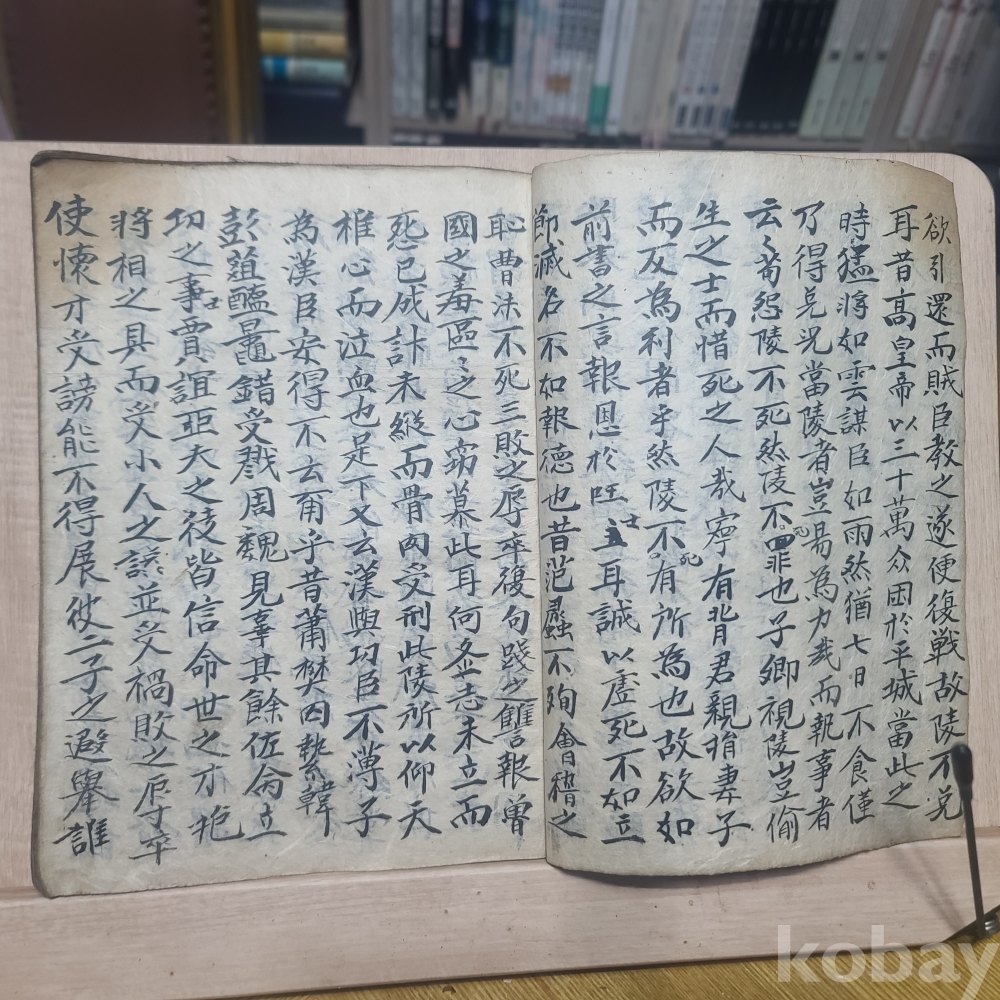 欲引還而賊臣教之遂便復戰故陵不免
耳昔高皇帝以三十萬众困於平城當此之
時猛將如雲謀臣如雨然猶七日不食僅
乃得免況當陵者豈易為力哉而報事者
云〻苟怨陵不死然陵不死罪也子卿視陵豈偷
生之士而惜死之人哉寧有背君親捐妻子
而反為利者乎然陵不死有所為也故欲如
前書之言報恩於国主耳誠以虛死不如立
節滅名不如報德也昔范蠡不殉會稽之
恥曹沫不死三敗之辱卒復句踐之讎報魯
國之毒區〻之心竊慕此耳何啚志未立而
怨已成計未縱而骨肉受刑此陵所以仰天
椎心而泣血也足下又云漢與功臣不薄子
為漢臣安得不云甭乎昔蕭樊囚縶韓
彭葅醢鼂錯受戮周魏見辜其餘佐命立
功之事賈誼亞夫之徒皆信命世之才抱
將相之具而受小人之謗並受禍敗之辱卒
使懷才受謗能不得展彼二子之遐舉誰
kobay